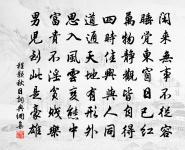 閑來無事不從容
睡覺東窗日已紅
萬物靜觀皆自得
四時佳興與人同
道通天地有形外
思入風雲變態中
富貴不淫貧賤樂
男兒到此是豪雄
程顥秋日